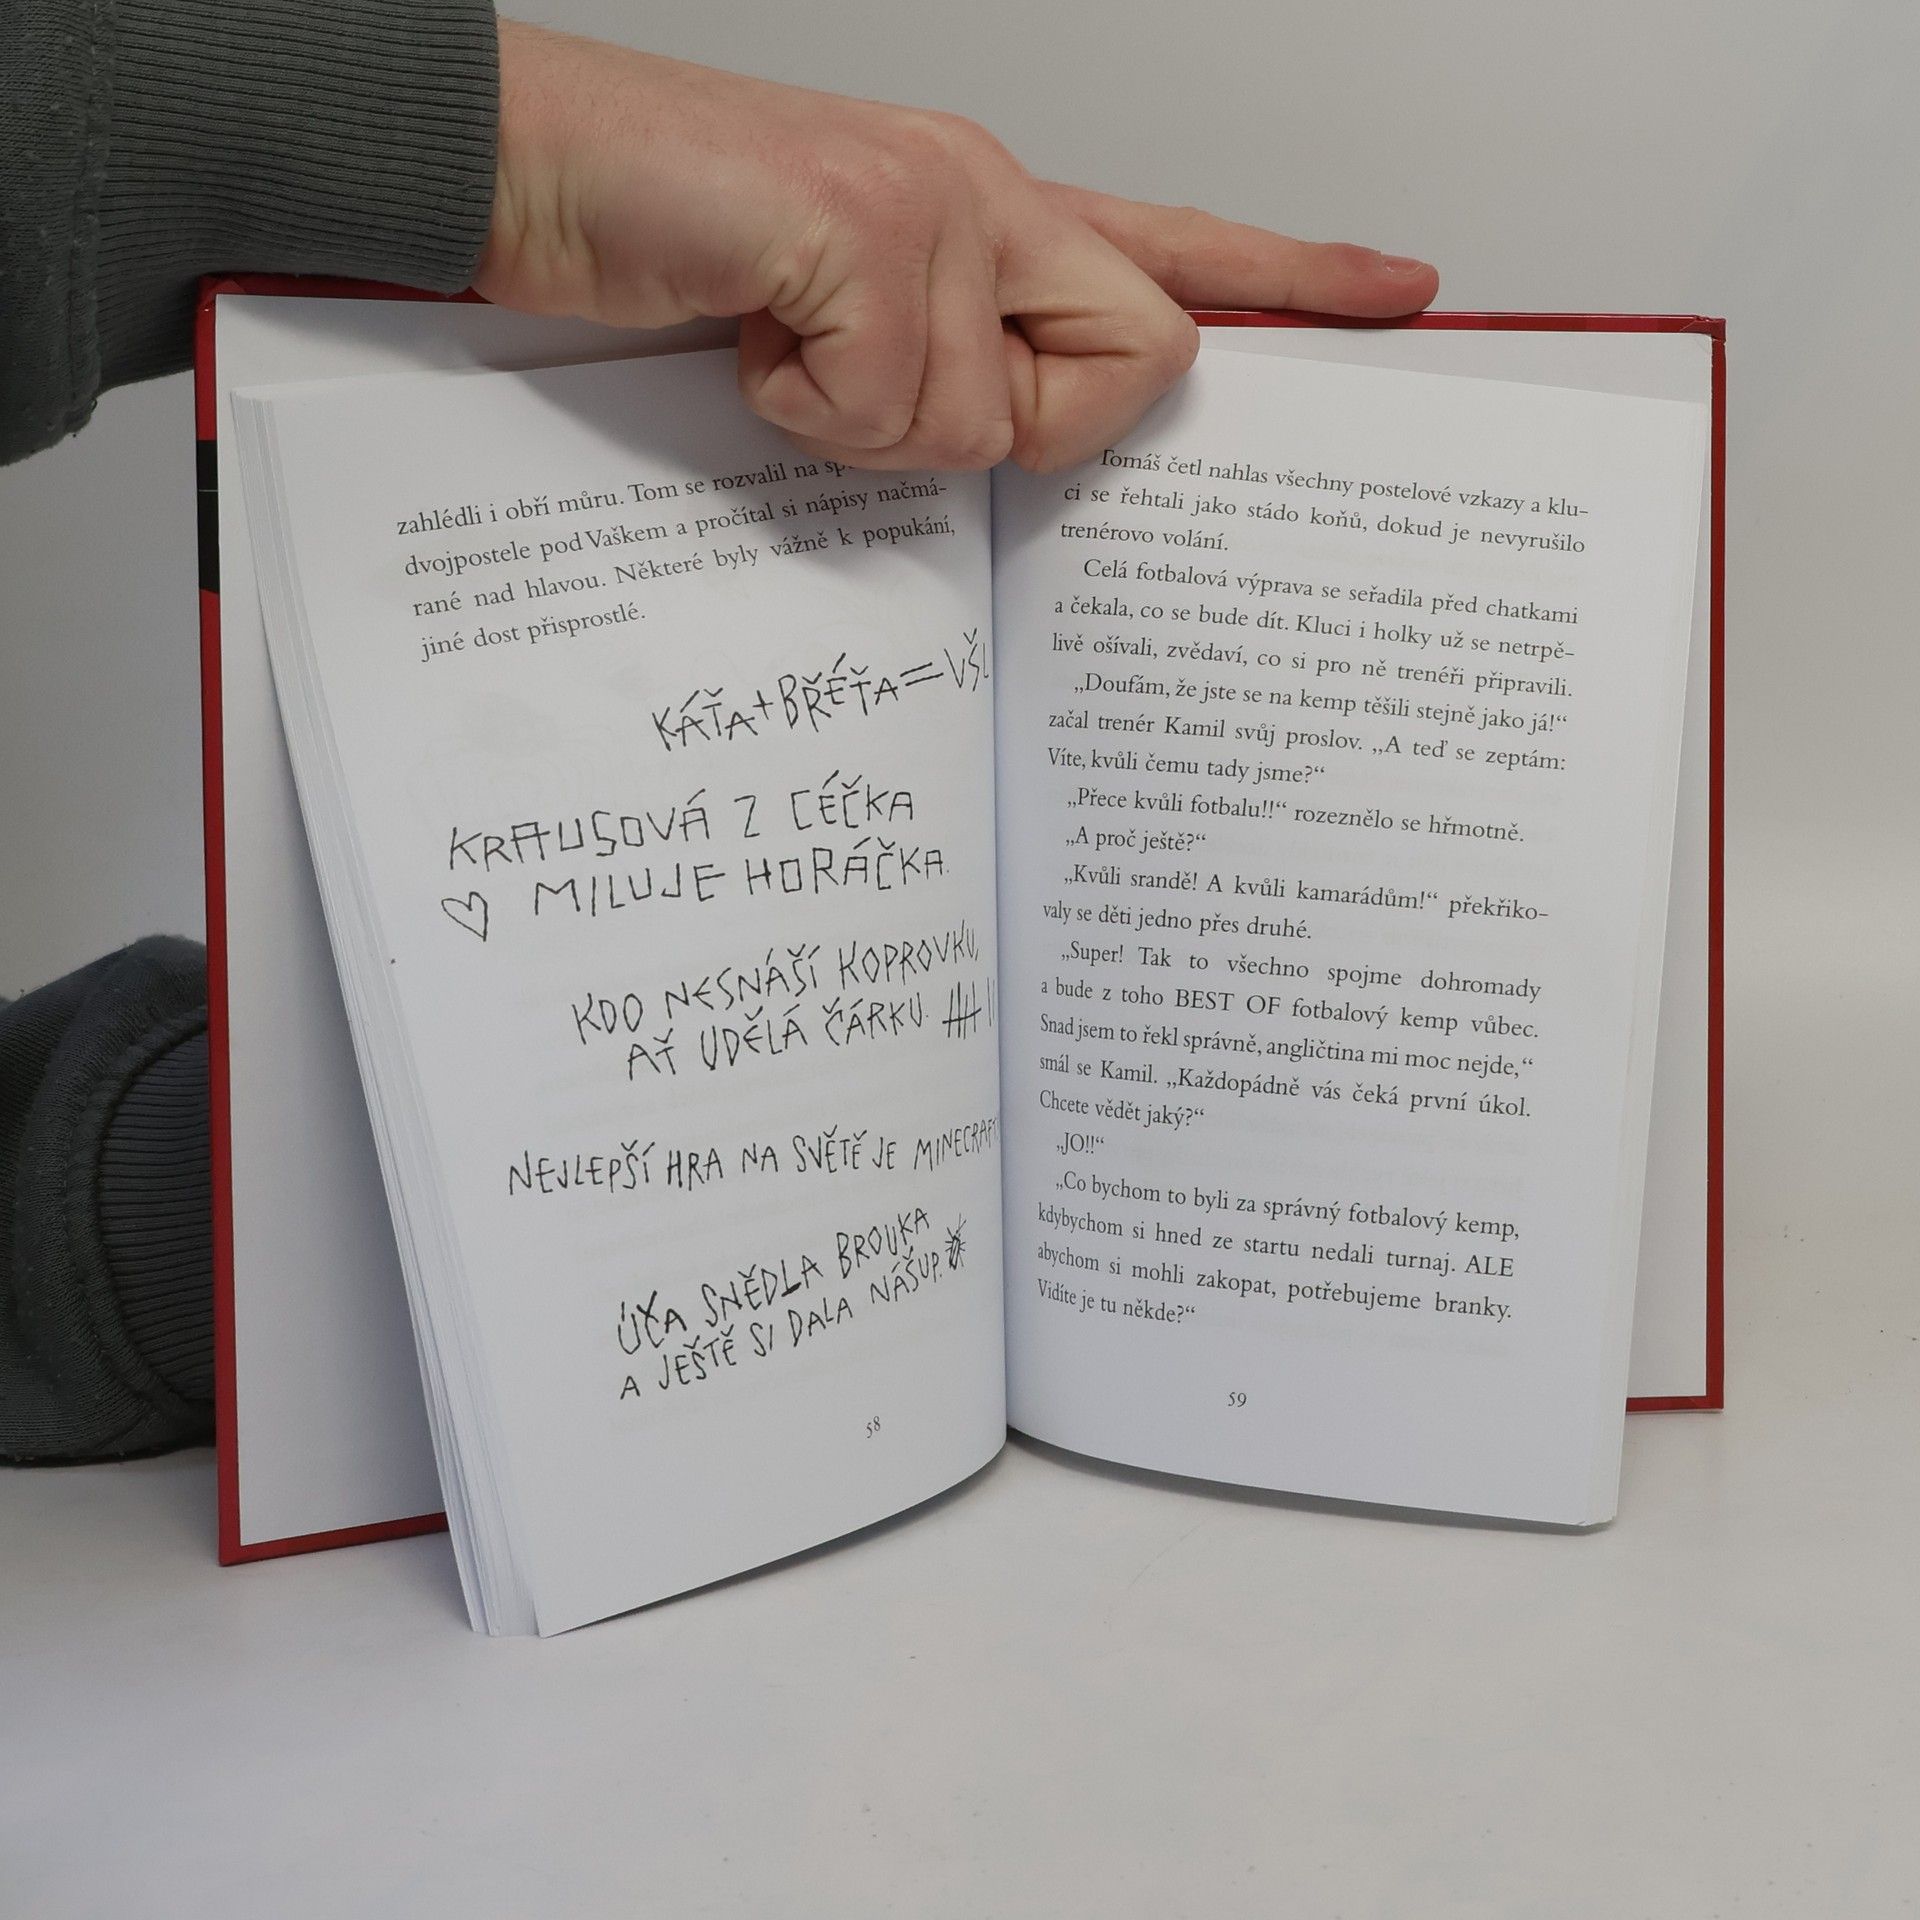 zahlédli i obří můru. Tom se rozvalil na
dvojpostele pod Vaškem a pročítal si nápisy načmá-
rané nad hlavou. Některé byly vážně k popukání,
jiné dost přisprostlé.
KÁŤA+BŘÉŤA=
KRAUSOVÁ Z CÉČKA
MILUJE HORÁČKA.
KDO NESNÁŠÍ KOPROVKU,
AŤ UDĚLÁ ČÁRKU.
NEJLEPŠÍ HRA NA SVĚTĚ JE MINECRAFT
ÚČA SNĚDLA BROUKA
A JEŠTĚ SI DALA NÁŠUP.
58
Tomáš četl nahlas všechny postelové vzkazy a klu-
ci se řehtali jako stádo koňů, dokud je nevyrušilo
trenérovo volání.
Celá fotbalová výprava se seřadila před chatkami
a čekala, co se bude dít. Kluci i holky už se netrpě-
livě ošívali, zvědaví, co si pro ně trenéři připravili.
„Doufám, že jste se na kemp těšili stejně jako já!“
začal trenér Kamil svůj proslov. „A teď se zeptám:
Víte, kvůli čemu tady jsme?“
„Přece kvůli fotbalu!!“ rozeznělo se hřmotně.
„A proč ještě?“
„Kvůli srandě! A kvůli kamarádům!“ překřiko-
valy se děti jedno přes druhé.
„Super! Tak to všechno spojme dohromady
a bude z toho BEST OF fotbalový kemp vůbec.
Snad jsem to řekl správně, angličtina mi moc nejde,“
smál se Kamil. „Každopádně vás čeká první úkol.
Chcete vědět jaký?“
„JO!!“
„Co bychom to byli za správný fotbalový kemp,
kdybychom si hned ze startu nedali turnaj. ALE
abychom si mohli zakopat, potřebujeme branky.
Vidíte je tu někde?“
59